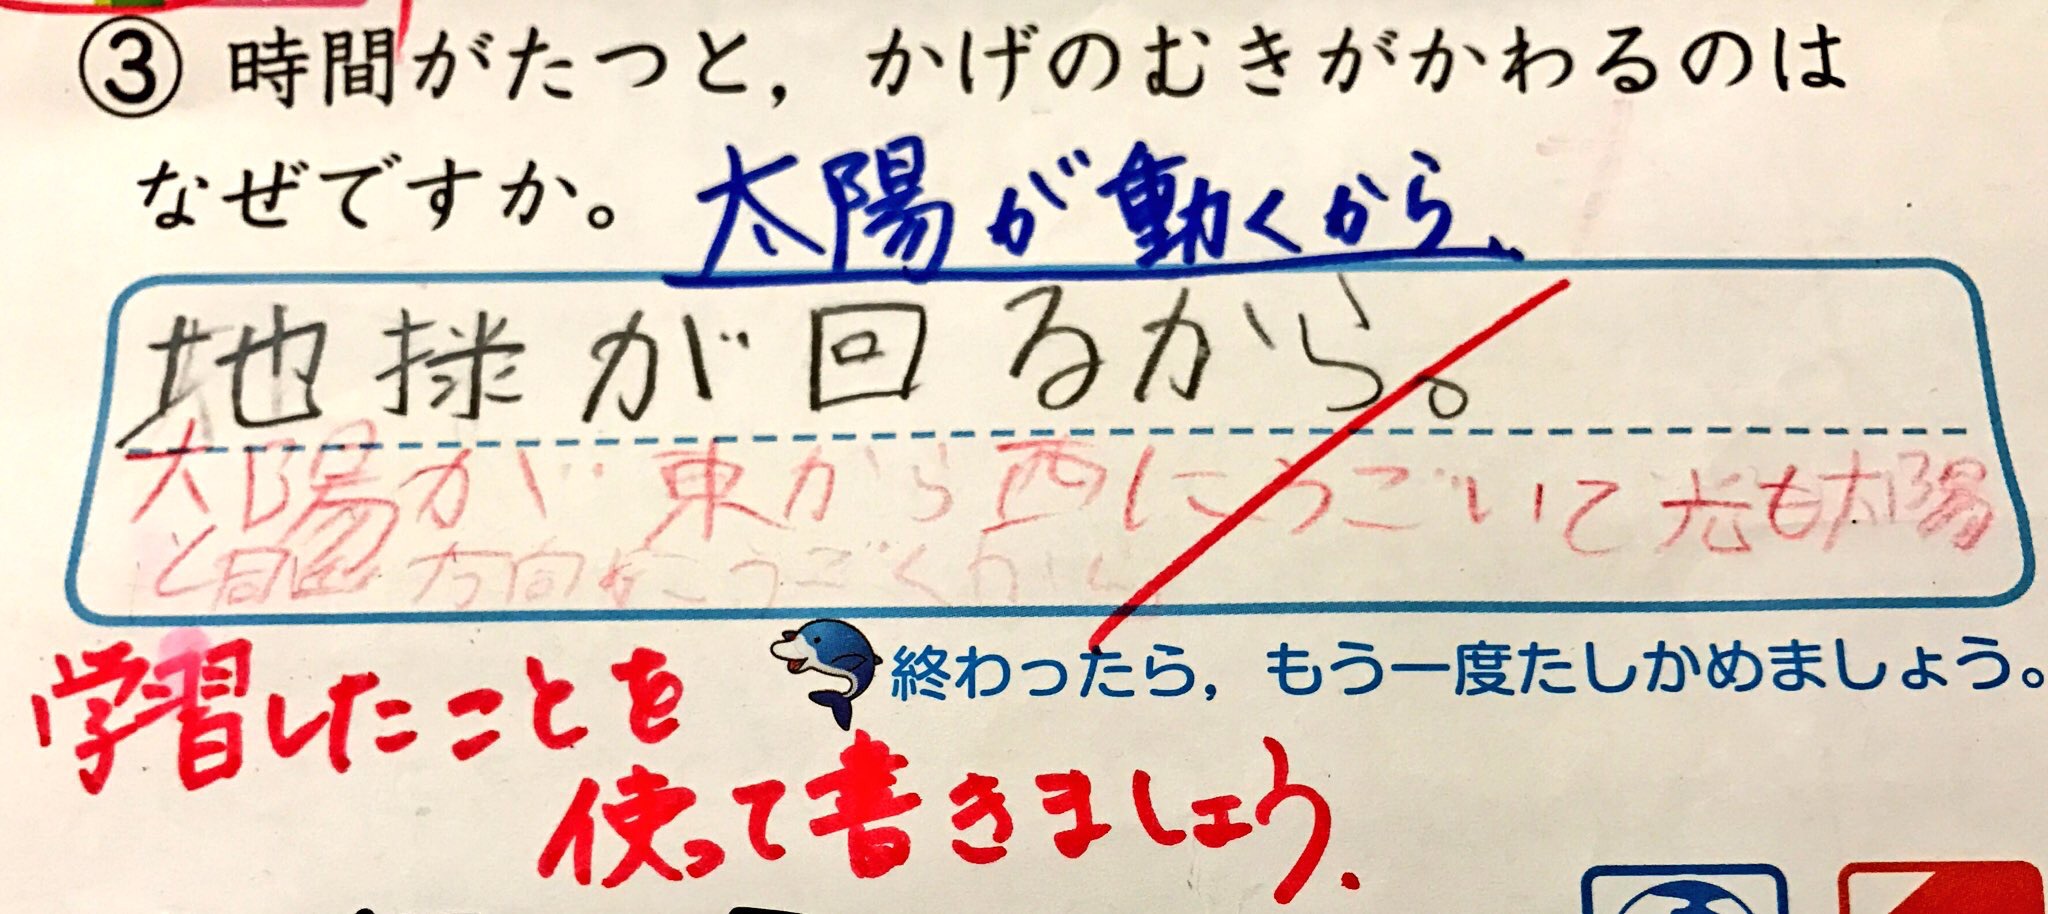 ③ 時間がたつと，かげのむきがかわるのは
なぜですか。
太陽が動くから
地球が回るから。
太陽が東から西にうごいて光も太陽
と同じ方向にうごくから
終わったら，もう一度たしかめましょう。
学習したことを
使って書きましょう．